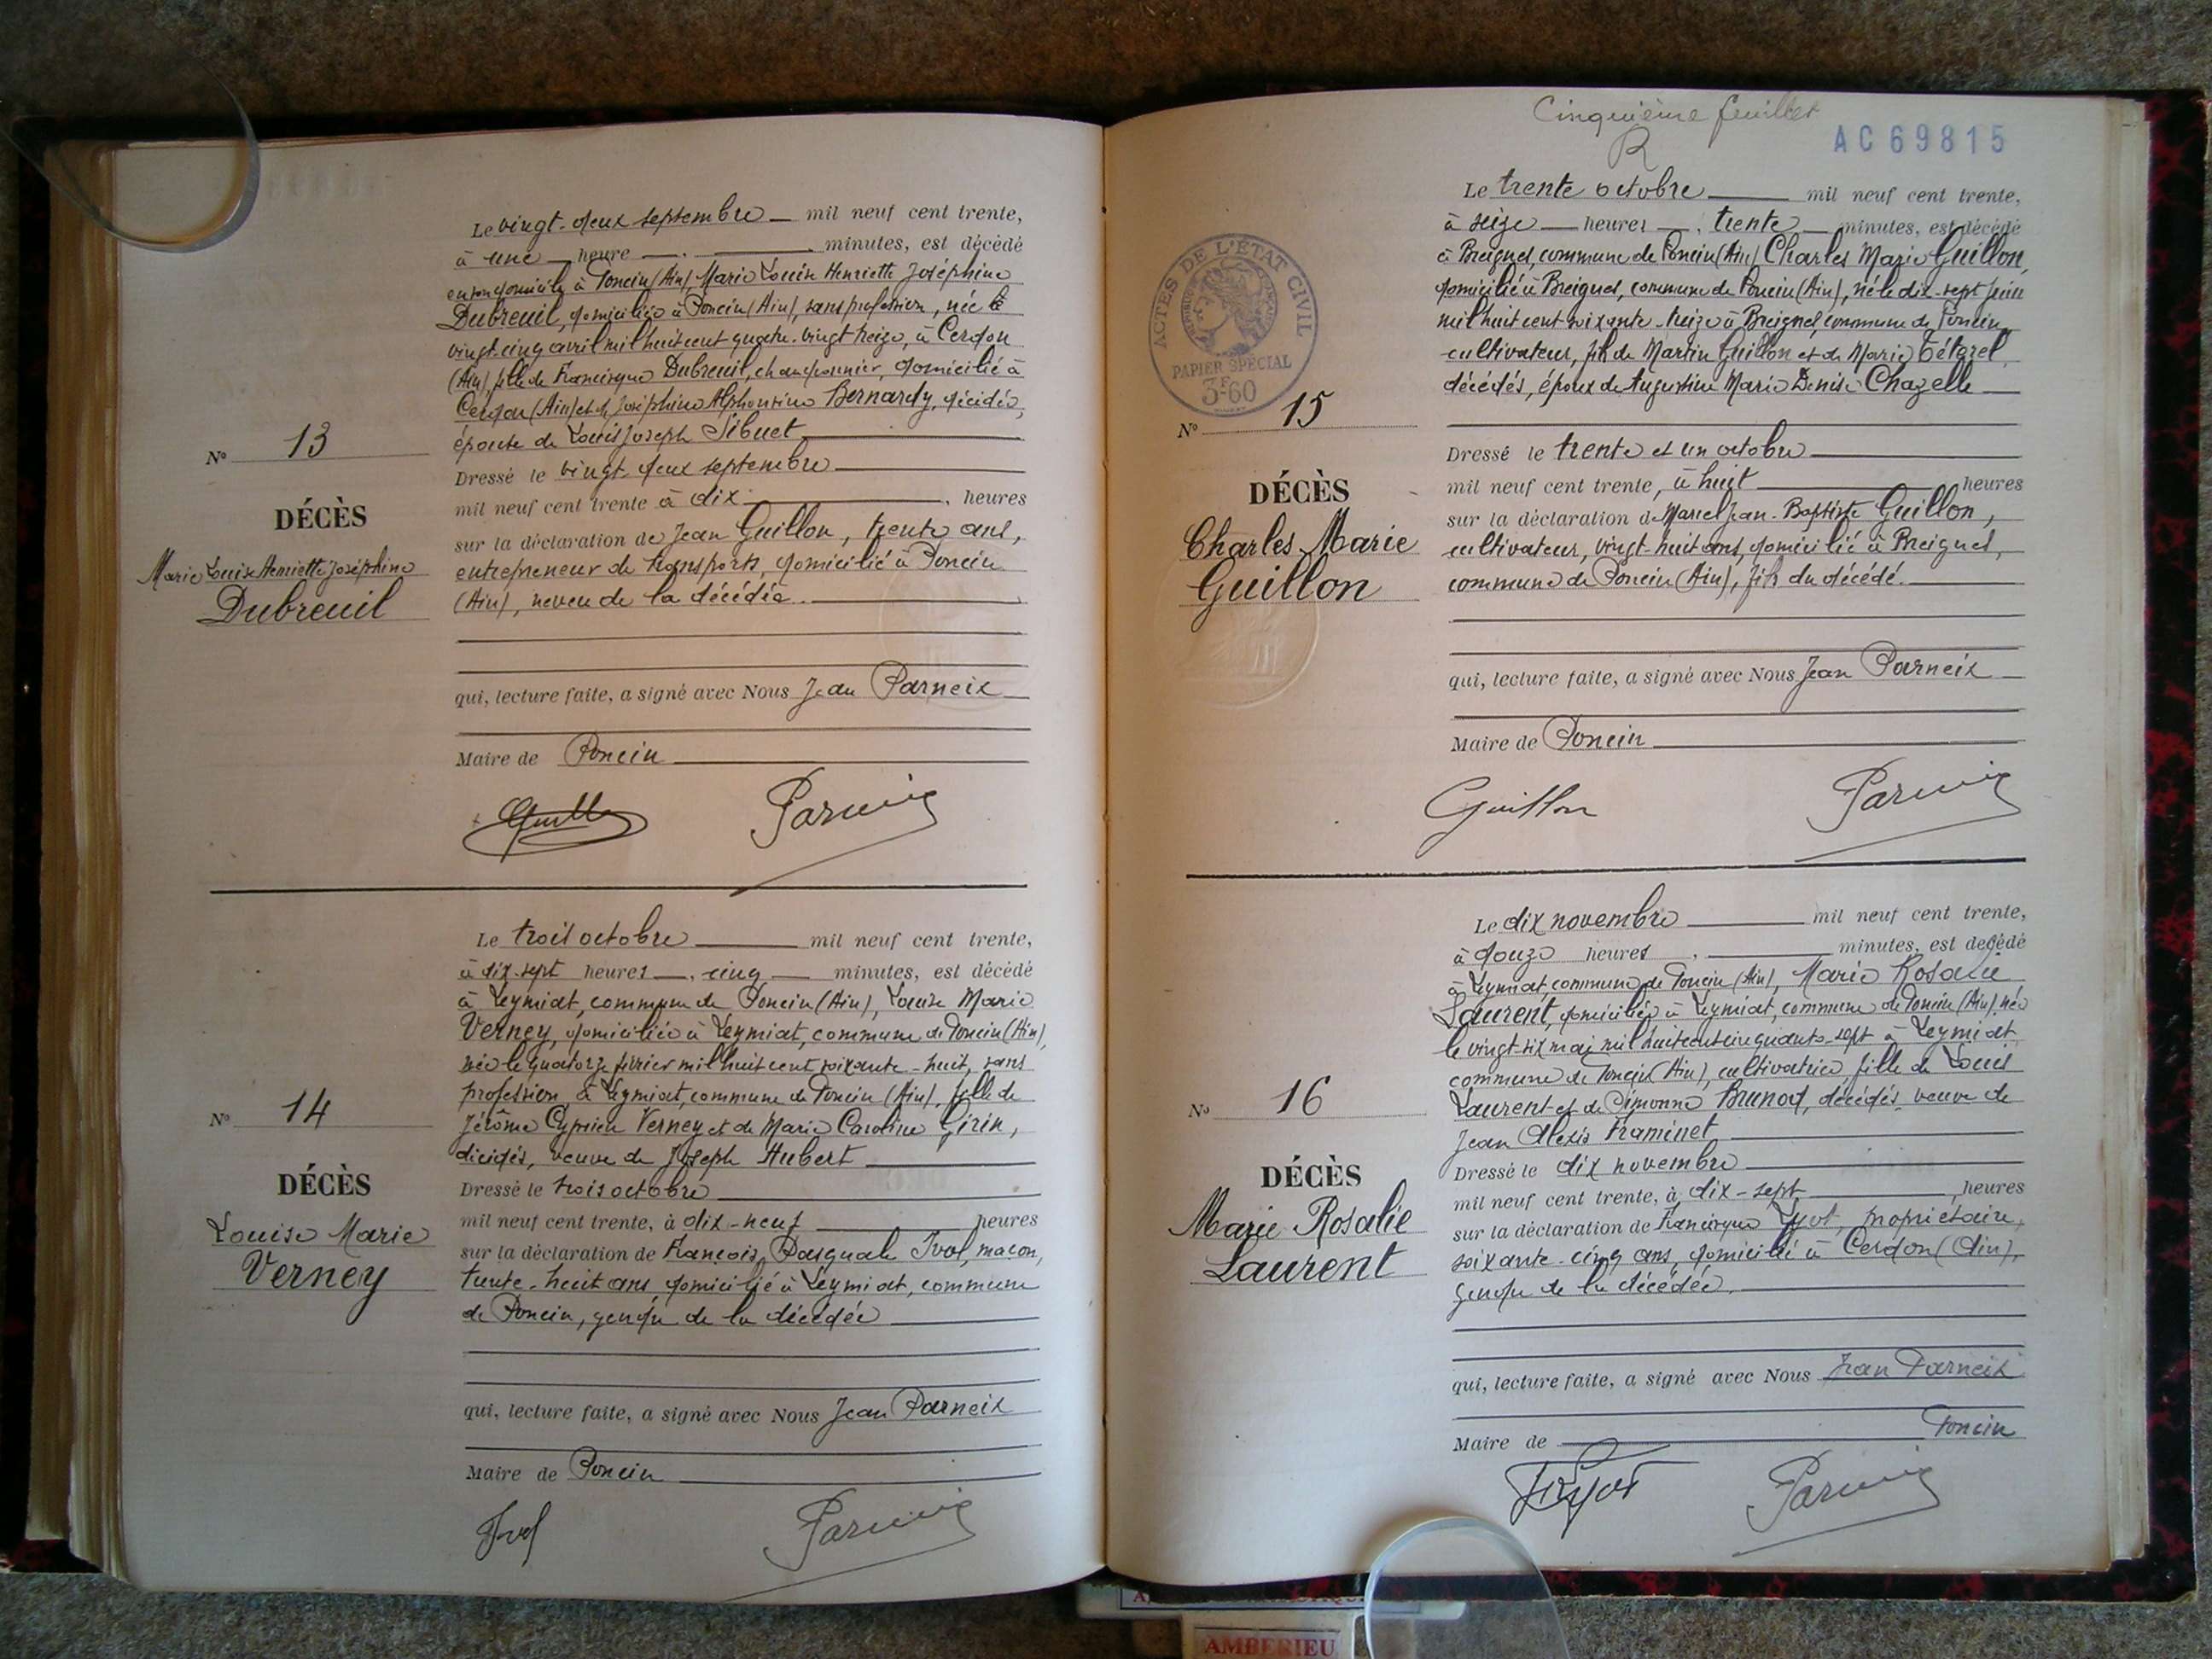 Le vingt-deux septembre mil neuf cent trente,
à une heure minutes, est décédé
en son domicile à Poncin (Ain), Marie Louise Henriette Joséphine
Dubreuil, domiciliée à Poncin (Ain), sans profession, née le
vingt-cinq avril mil huit cent quatre-vingt treize, à Cerdon
(Ain), fille de Francisque Dubreuil, charponnier, domicilié à
Cerdon (Ain) et de Joséphine Alphonsine Bernardy, décédée,
épouse de Louis Joseph Sibuet
Nº 13
DÉCÈS
Marie Louise Henriette Joséphine
Dubreuil
Dressé le vingt-deux septembre
mil neuf cent trente à dix heures
sur la déclaration de Jean Guillon, trente ans,
entrepreneur de transports, domicilié à Poncin
(Ain), neveu de la décédée.
qui, lecture faite, a signé avec Nous Jean Parneix
Maire de Poncin
Parneix
Le trois octobre mil neuf cent trente,
à dix-sept heures cinq minutes, est décédé
à Leymiat, commune de Poncin (Ain), Louise Marie
Verney, domiciliée à Leymiat, commune de Poncin (Ain),
née le quatorze février mil huit cent soixante-huit, sans
profession, à Leymiat, commune de Poncin (Ain), fille de
Jérôme Cyprien Verney et de Marie Caroline Girin,
décédés, veuve de Joseph Hubert
Nº 14
DÉCÈS
Louise Marie
Verney
Dressé le trois octobre
mil neuf cent trente, à dix-neuf heures
sur la déclaration de François Pasquale Ivol, maçon,
trente-huit ans, domicilié à Leymiat, commune
de Poncin, gendre de la décédée
qui, lecture faite, a signé avec Nous Jean Parneix
Maire de Poncin
Ivol Parneix
Cinquième feuillet
AC 69815
Le trente octobre mil neuf cent trente,
à seize heures, trente minutes, est décédé
à Breignes, commune de Poncin (Ain) Charles Marie Guillon,
domicilié à Breignes, commune de Poncin (Ain), né le dix-sept juin
mil huit cent soixante-treize à Breignes, commune de Poncin,
cultivateur, fils de Martin Guillon et de Marie Tétarel,
décédés, époux de Augustine Marie Denise Chazelle
ACTES DE L'ÉTAT CIVIL
RÉPUBLIQUE FRANÇAISE
PAPIER SPÉCIAL
3F60
Nº 15
DÉCÈS
Charles Marie
Guillon
Dressé le trente et un octobre
mil neuf cent trente, à huit heures
sur la déclaration de Marcel Jean-Baptiste Guillon,
cultivateur, vingt-huit ans, domicilié à Breignes,
commune de Poncin (Ain), fils du décédé.
qui, lecture faite, a signé avec Nous Jean Parneix
Maire de Poncin
Guillon Parneix
Le dix novembre mil neuf cent trente,
à douze heures, minutes, est decédé
à Leymiat, commune de Poncin (Ain), Marie Rosalie
Laurent, domiciliée à Leymiat, commune de Poncin (Ain), née
le vingt-six mai mil huit cent cinquante-sept à Leymiat
commune de Poncin (Ain), cultivatrice, fille de Louis
Laurent et de Simonne Brunod, décédés, veuve de
Jean Alexis Framinet
Nº 16
DÉCÈS
Marie Rosalie
Laurent
Dressé le dix novembre
mil neuf cent trente, à dix-sept heures
sur la déclaration de Francisque propriétaire,
soixante-cinq ans, domicilié à Cerdon (Ain),
gendre de la décédée.
qui, lecture faite, a signé avec Nous Jean Parneix
Maire de Poncin
Parneix
AMBERIEU